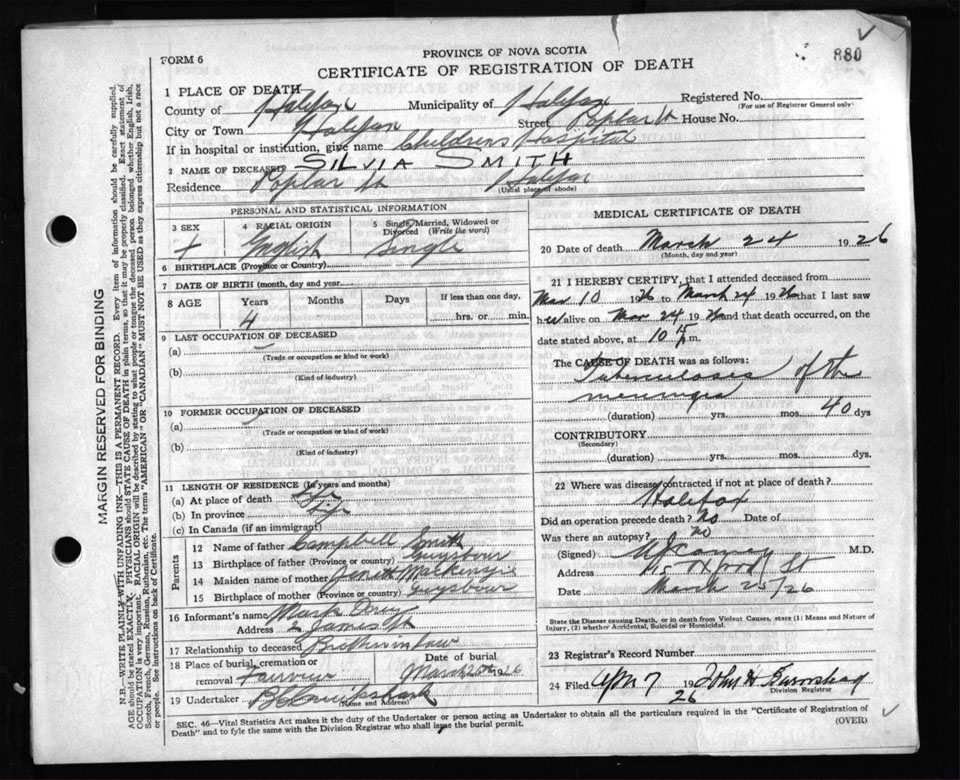 880
FORM 6
PROVINCE OF NOVA SCOTIA
CERTIFICATE OF REGISTRATION OF DEATH
1 PLACE OF DEATH
County of Halifax Municipality of Halifax Registered No.
(For use of Registrar General only)
City or Town Halifax Street Poplar St House No.
If in hospital or institution, give name Childrens Hospital
2 NAME OF DECEASED SILVIA SMITH
Residence Poplar St Halifax
(Usual place of abode)
PERSONAL AND STATISTICAL INFORMATION
3 SEX 4 RACIAL ORIGIN 5 Single, Married, Widowed or Divorced (Write the word)
English Single
6 BIRTHPLACE (Province or Country)
7 DATE OF BIRTH (month, day and year)
8 AGE Years Months Days If less than one day,
4 hrs. or min.
9 LAST OCCUPATION OF DECEASED
(a)
(Trade or occupation or kind or work)
(b)
(Kind of industry)
10 FORMER OCCUPATION OF DECEASED
(a)
(Trade or occupation or kind of work)
(b)
(Kind of industry)
11 LENGTH OF RESIDENCE (In years and months)
(a) At place of death Life
(b) In province Life
(c) In Canada (if an immigrant)
Parents
12 Name of father Campbell Smith
13 Birthplace of father (Province or country) Guysboro
14 Maiden name of mother McKenzie
15 Birthplace of mother (Province or country) Guysboro
16 Informant's name Mark
Address James St
17 Relationship to deceased Brother in law
18 Place of burial, cremation or removal Fairview
Date of burial
March 1926
19 Undertaker Cruikshank
(Name and Address)
MEDICAL CERTIFICATE OF DEATH
20 Date of death March 24 1926
(Month, day and year)
21 I HEREBY CERTIFY, that I attended deceased from
Mar 10 1926 to March 24 1926 that I last saw
her alive on Mar 24 1926 and that death occurred, on
date stated above, at 10 15 p.m.
The CAUSE OF DEATH was as follows:
Tuberculoses of the
meninges
(duration) yrs. mos. 40 dys
CONTRIBUTORY
(Secondary)
(duration) yrs. mos. dys.
22 Where was disease contracted if not at place of death?
Halifax
Did an operation precede death? No Date of
Was there an autopsy? no
(Signed) M.D.
Address Oxford St
Date March 25/26
State the Disease causing Death, or in death from Violent Causes, state (1) Means and Nature of
Injury, (2) whether Accidental, Suicidal or Homicidal.
23 Registrar's Record Number
24 Filed Apr 7 26 John
Division Registrar
SEC. 46—Vital Statistics Act makes it the duty of the Undertaker or person acting as Undertaker to obtain all the particulars required in the "Certificate of Registration of
Death" and to fyle the same with the Division Registrar who shall issue the burial permit.
(OVER)
MARGIN RESERVED FOR BINDING
N.B.—WRITE PLAINLY WITH UNFADING INK—THIS IS A PERMANENT RECORD. Every item of information should be carefully supplied.
AGE should be stated EXACTLY. PHYSICIANS should STATE CAUSE OF DEATH in plain terms, so that it may be properly classified. Exact statement of
OCCUPATION is very important. RACIAL ORIGIN will be described by stating to what people or tongue the deceased person belonged whether English, Irish,
Scotch, French, German, Russian, Ruthenian, etc. The terms "AMERICAN" OR "CANADIAN" MUST NOT BE USED as they express citizenship but not a race
or people. See instructions on back of Certificate.